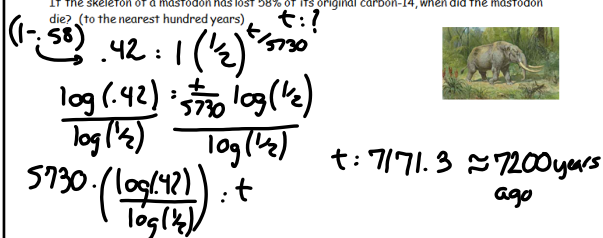 If the skeleton of a mastodon has lost 58% of its original carbon-14, when did the mastodon
die? (to the nearest hundred years) t = ?
(1-.58)
.42 = 1 (1/2)^t/5730
log (.42) = t/5730 log (1/2)
log (1/2) log (1/2)
5730 · (log(.42)/log(1/2)) = t
t = 7171.3 ≈ 7200 years
ago